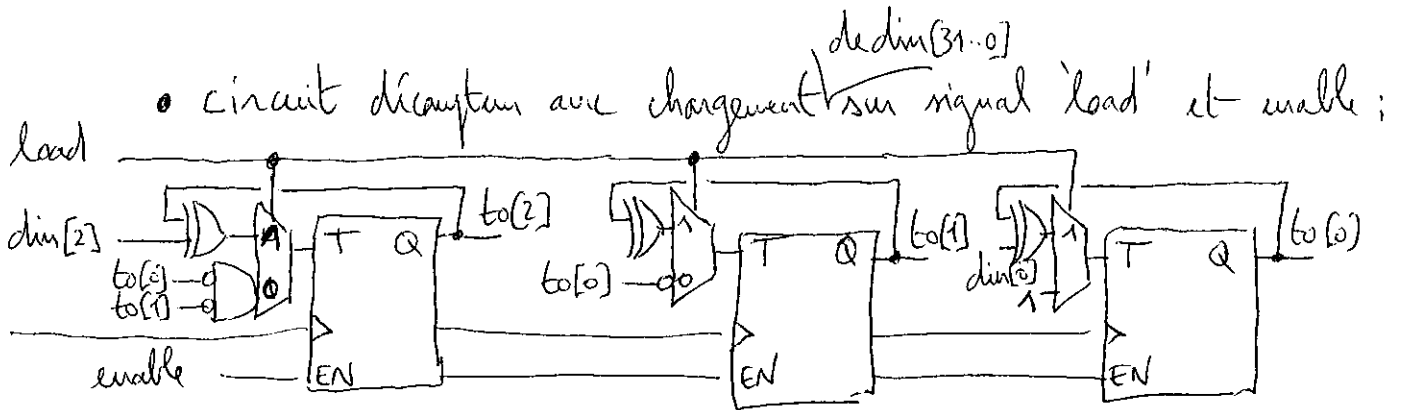 de din[31..0]
• circuit décompteur avec chargement sur signal 'load' et enable :
load
din[2]
to[0]
to[1]
1
0
T Q
to[2]
EN
1
to[0]
0
T Q
to[1]
EN
1
din[0]
1
T Q
to[0]
EN
enable